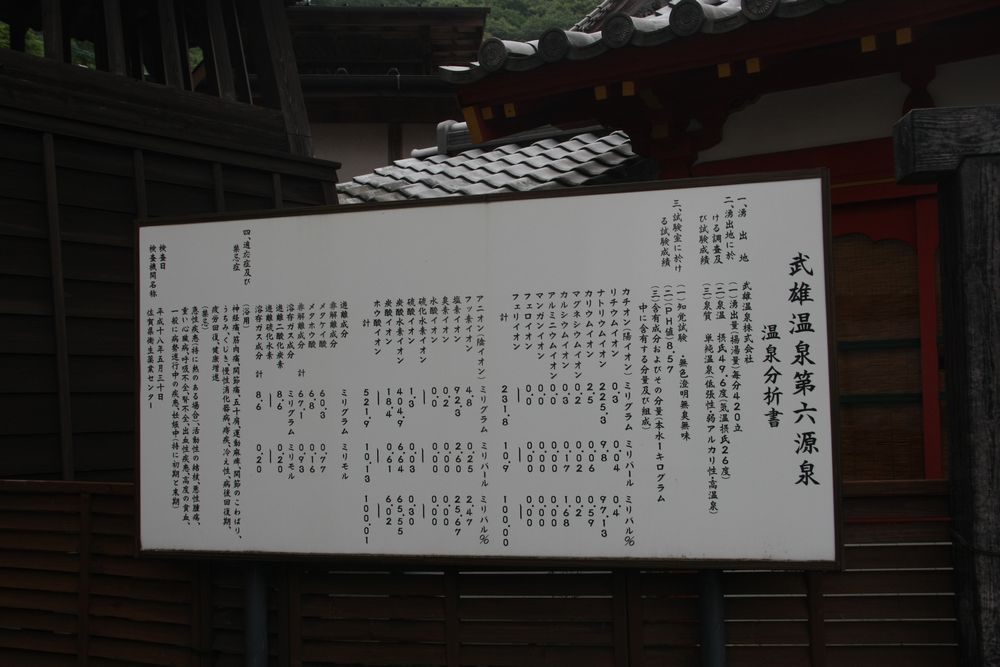 武雄温泉第六源泉
温泉分析書
一、湧出地
武雄温泉株式会社
二、湧出地に於
ける調査及
び試験成績
(一)湧出量(揚湯量)毎分420立
(二)泉温 摂氏49.6度(気温摂氏26度)
(三)泉質 単純温泉(低張性・弱アルカリ性・高温泉)
三、試験室に於け
る試験成績
(一)知覚試験・無色澄明無臭無味
(二)(PH値)8.57
(三)含有成分およびその分量(本水1キログラム
中に含有する分量及び組成)
カチオン(陽イオン) ミリグラム ミリバール ミリバル%
リチウムイオン 0.3 0.04 0.4
ナトリウムイオン 225.3 9.8 97.13
カリウムイオン 2.5 0.06 0.59
マグネシウムイオン 0.2 0.02
カルシウムイオン 3.4 0.17 1.68
アルミニウムイオン 0.0 0.00 0.00
マンガンイオン 0.0 0.00 0.00
フェロイオン 0.0 0.00 0.00
フェリイオン
計 231.8 10.9 100.00
アニオン(陰イオン) ミリグラム ミリバール ミリバル%
フッ素イオン 4.8 0.25 2.47
塩素イオン 92.3 2.60 25.67
臭素イオン 0.2 0.00 0.00
水酸イオン 0.0 0.00 0.00
硫化水素イオン
硫酸イオン 1.3 0.03 0.30
炭酸水素イオン 404.9 6.64 65.55
炭酸イオン 18.4 0.61 6.02
ホウ酸イオン
計 521.9 10.13 100.01
遊離成分
非解離成分 ミリグラム ミリモル
メタケイ酸 60.3 0.77
メタホウ酸 6.8 0.16
非解離成分 計 67.1 0.93
溶存ガス成分 ミリグラム ミリモル
遊離二酸化炭素 8.6 0.20
遊離硫化水素
溶存ガス成分 計 8.6 0.20
四、適応症及び
禁忌症
(浴用)
神経痛、筋肉痛、関節痛、五十肩、運動麻痺、関節のこわばり、
うちみ、くじき、慢性消化器病、痔疾、冷え性、病後回復期、
疲労回復、健康増進
(禁忌)
急性疾患(特に熱のある場合)、活動性の結核、悪性腫瘍、
重い心臓病、呼吸不全、腎不全、出血性疾患、高度の貧血、
一般に病勢進行中の疾患、妊娠中(特に初期と末期)
検査日 平成十八年五月三十日
検査機関名称 佐賀県衛生薬業センター